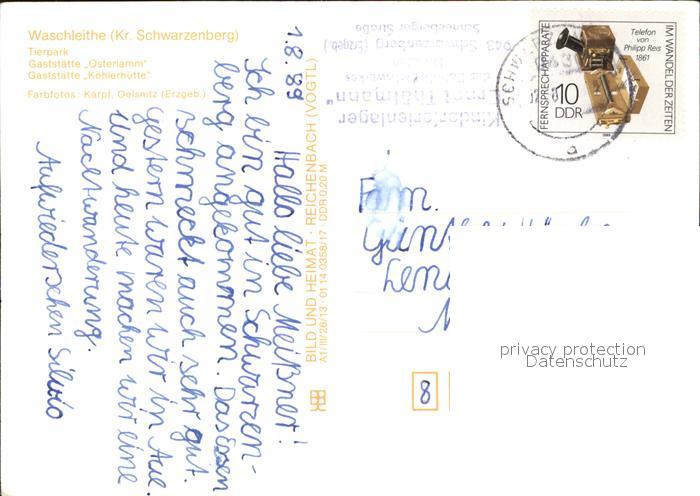 Waschleithe (Kr. Schwarzenberg)
Tierpark
Gaststätte „Osterlamm"
Gaststätte „Köhlerhütte"
Farbfotos: Karpf, Oelsnitz (Erzgeb.)
1.8.89
Hallo liebe Meißner!
Ich bin gut in Schwarzen-
berg angekommen. Das Essen
schmeckt auch sehr gut.
Gestern waren wir in Aue
und heute machen wir eine
Nachtwanderung.
Aufwiedersehen Silvio
BILD UND HEIMAT · REICHENBACH (VOGTL)
A1/III/26/13 · 01 14 0358/17 · DDR 0,20 M
Kinderferienlager
"Ernst Thälmann"
943 Schwarzenberg (Erzgeb.)
Schneeberger Straße
FERNSPRECHAPPARATE
IM WANDEL DER ZEITEN
Telefon
von
Philipp Reis
1861
10
DDR
a
Fam.
8
privacy protection
Datenschutz